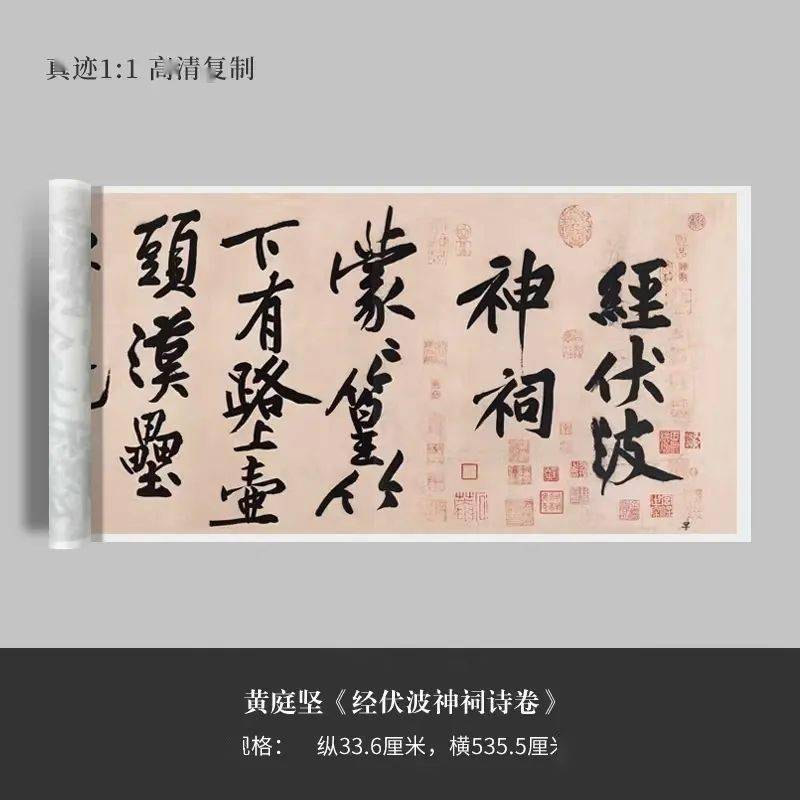 真迹1:1 高清复制
經伏波
神祠
蒙〻篁竹
下有路上壷
頭漢壘
黄庭坚《经伏波神祠诗卷》
规格： 纵33.6厘米，横535.5厘米